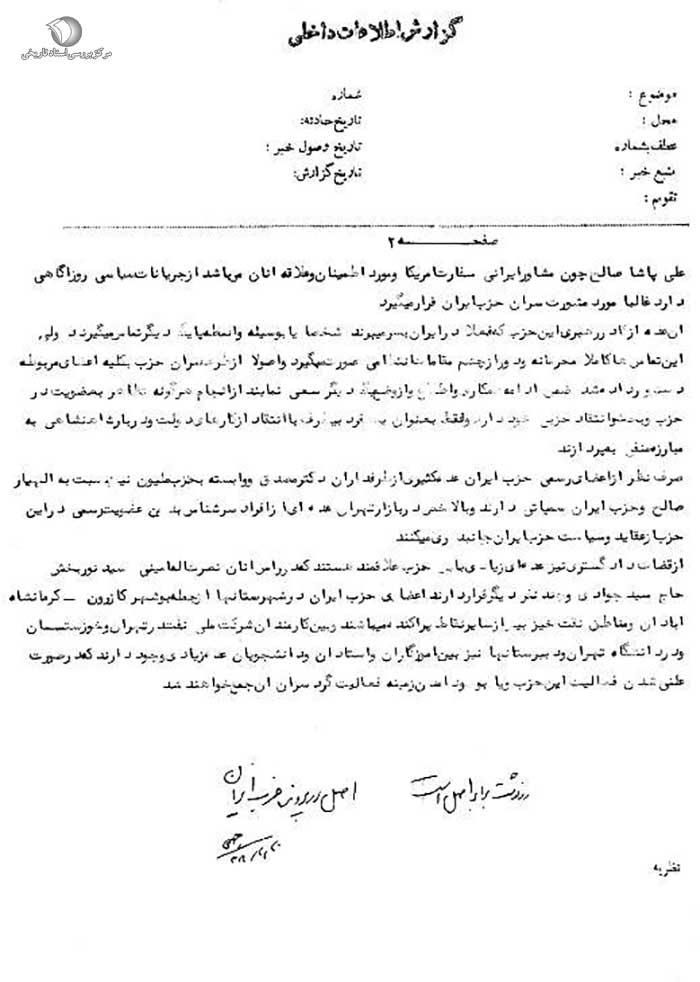 مرکز بررسی اسناد تاریخی
گزارش اطلاعات داخلی
موضوع :
شماره
محل :
تاریخ حادثه:
عطف بشماره
تاریخ وصول خبر :
منبع خبر :
تاریخ گزارش:
تقویم :
صفحه ۲
علی پاشا صالح چون مشاور ایرانی سفارت امریکا و مورد اطمینان و علاقه انان میباشد از جریانات سیاسی روز آگاهی
دارد غالبا مورد مشورت سران حزب ایران قرار میگیرد
ان عده از کادر رهبری این حزب که فعلا در ایران بسر میبرند شخصا یا بوسیله واسطه با یکدیگر تماس میگیرند ولی
این تماس ها کاملا محرمانه و دور از چشم مقامات انتظامی صورت میگیرد و اصولا از طرف سران حزب بکلیه اعضای مربوطه
دستور داده شده ضمن ادامه همکاری و اطلاع از وضع یکدیگر سعی نمایند از انجام هرگونه تظاهر بعضویت در
حزب و انتقاد حزبی خود داری و فقط بعنوان یک فرد بیطرف با انتقاد از کارهای دولت و در باره اغتشاش به
مبارزه منفی بپردازند
صرف نظر از اعضای رسمی حزب ایران عده کثیری از طرفداران دکتر مصدق و وابسته بحزب ملیون نیز نسبت به الهیار
صالح و حزب ایران سمپاتی دارند و بالاخص در بازار تهران عده ای از افراد سرشناس بدون عضویت رسمی در این
حزب از عقاید و سیاست حزب ایران جانبداری میکنند
از قضات دادگستری نیز عده ای زیادی باین حزب علاقمند هستند که در راس انان نصرت اله امینی سید نور بخش
حاج سید جوادی و چند نفر دیگر قرار دارند اعضای حزب ایران در شهرستانها از جمله بوشهر کازرون – کرمانشاه
ابادان و مناطق نفت خیز بیش از سایر نقاط پراکنده میباشند و بین کارمندان شرکت ملی نفت در تهران و خوزستان
و در دانشگاه تهران و دبیرستانها نیز بین اموزگاران و استادان و دانشجویان عده زیادی وجود دارند که در صورت
علنی شدن فعالیت این حزب و یا بوجود امدن زمینه فعالیت گرد سران ان جمع خواهند شد
رونوشت برابر اصل است
اصل در پرونده حزب ایران
نظریه